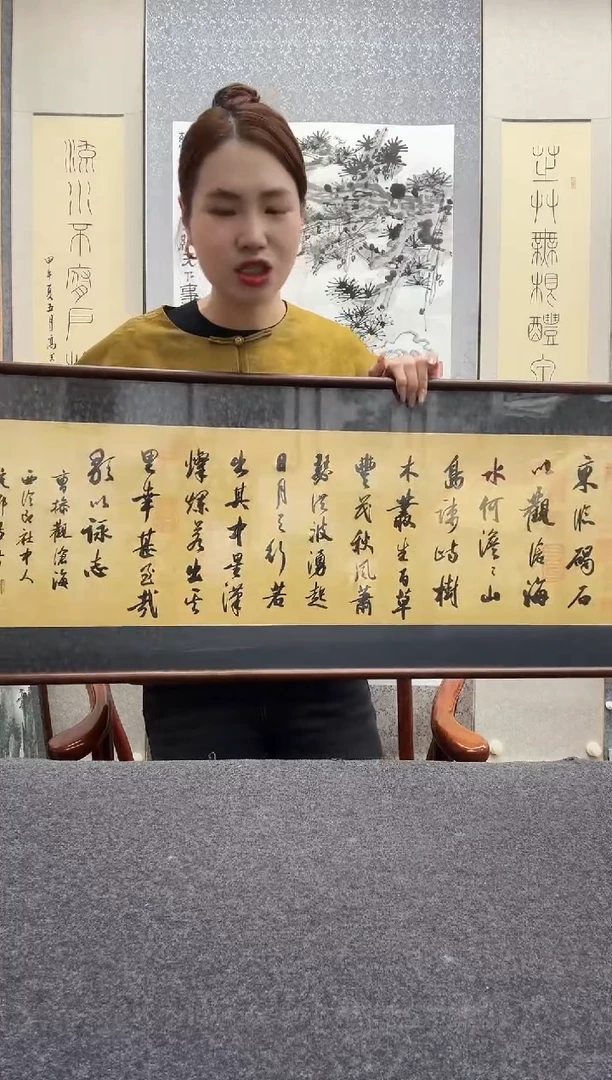 芝艸無根醴
流水不腐戶
甲午夏五月高
天下事
東臨碣石
以觀滄海
水何澹〻山
島竦峙樹
木叢生百草
豐茂秋風蕭
瑟洪波湧起
日月之行若
出其中星漢
燦爛若出其
里幸甚至哉
歌以詠志
曹操觀滄海
西泠印社中人